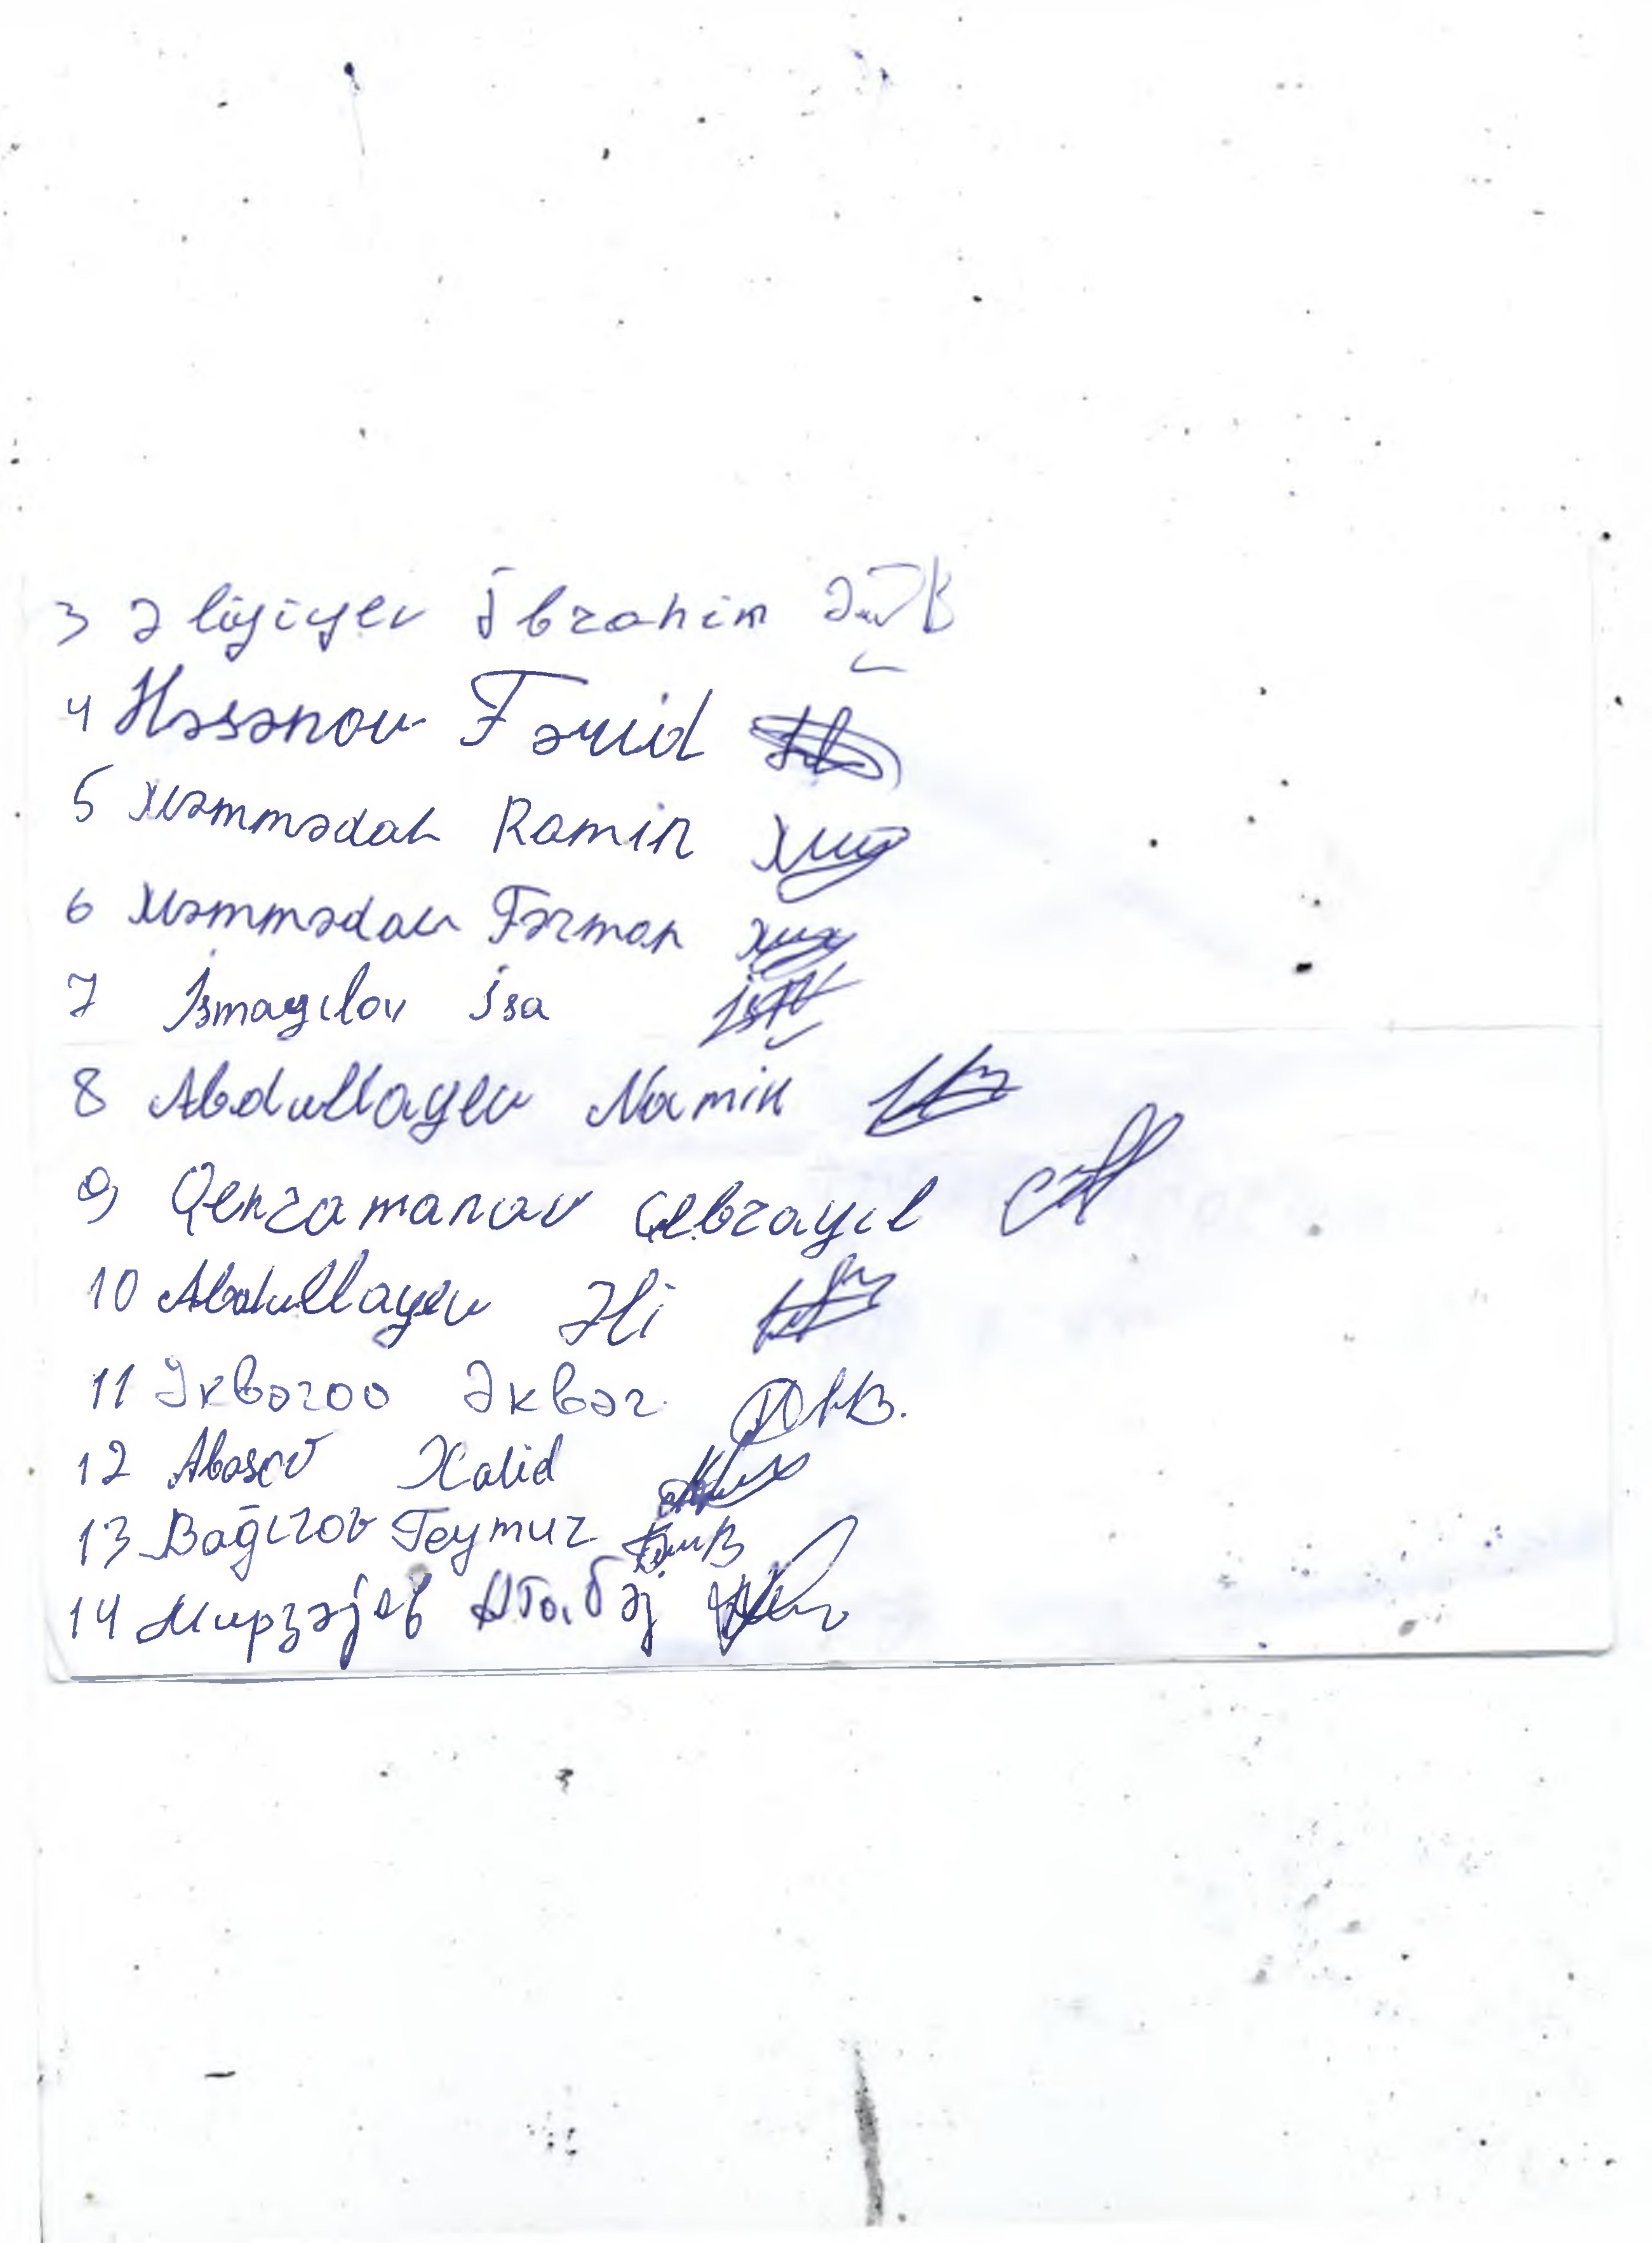 3 Əliyiyev İbrahim
4 Həsənov Fərid
5 Məmmədov Ramin
6 Məmmədov Fərman
7 İsmayılov İsa
8 Abdullayev Namik
9 Qenzamanov Cebrayıl
10 Abdullayev Əli
11 Əkbərov Əkbər
12 Abasov Xalid
13 Bağırov Teymur
14 Мирзәјев Атабәј